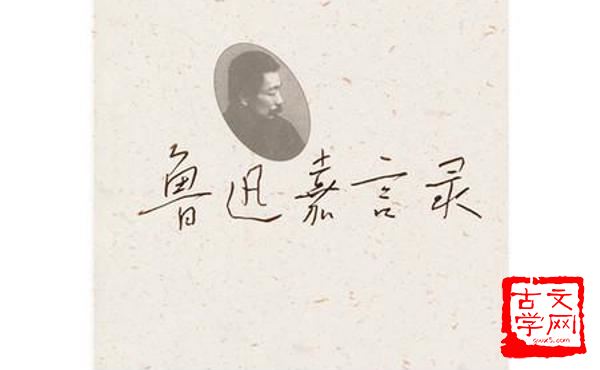 鲁迅嘉言录
古文
学网
gwx5.com